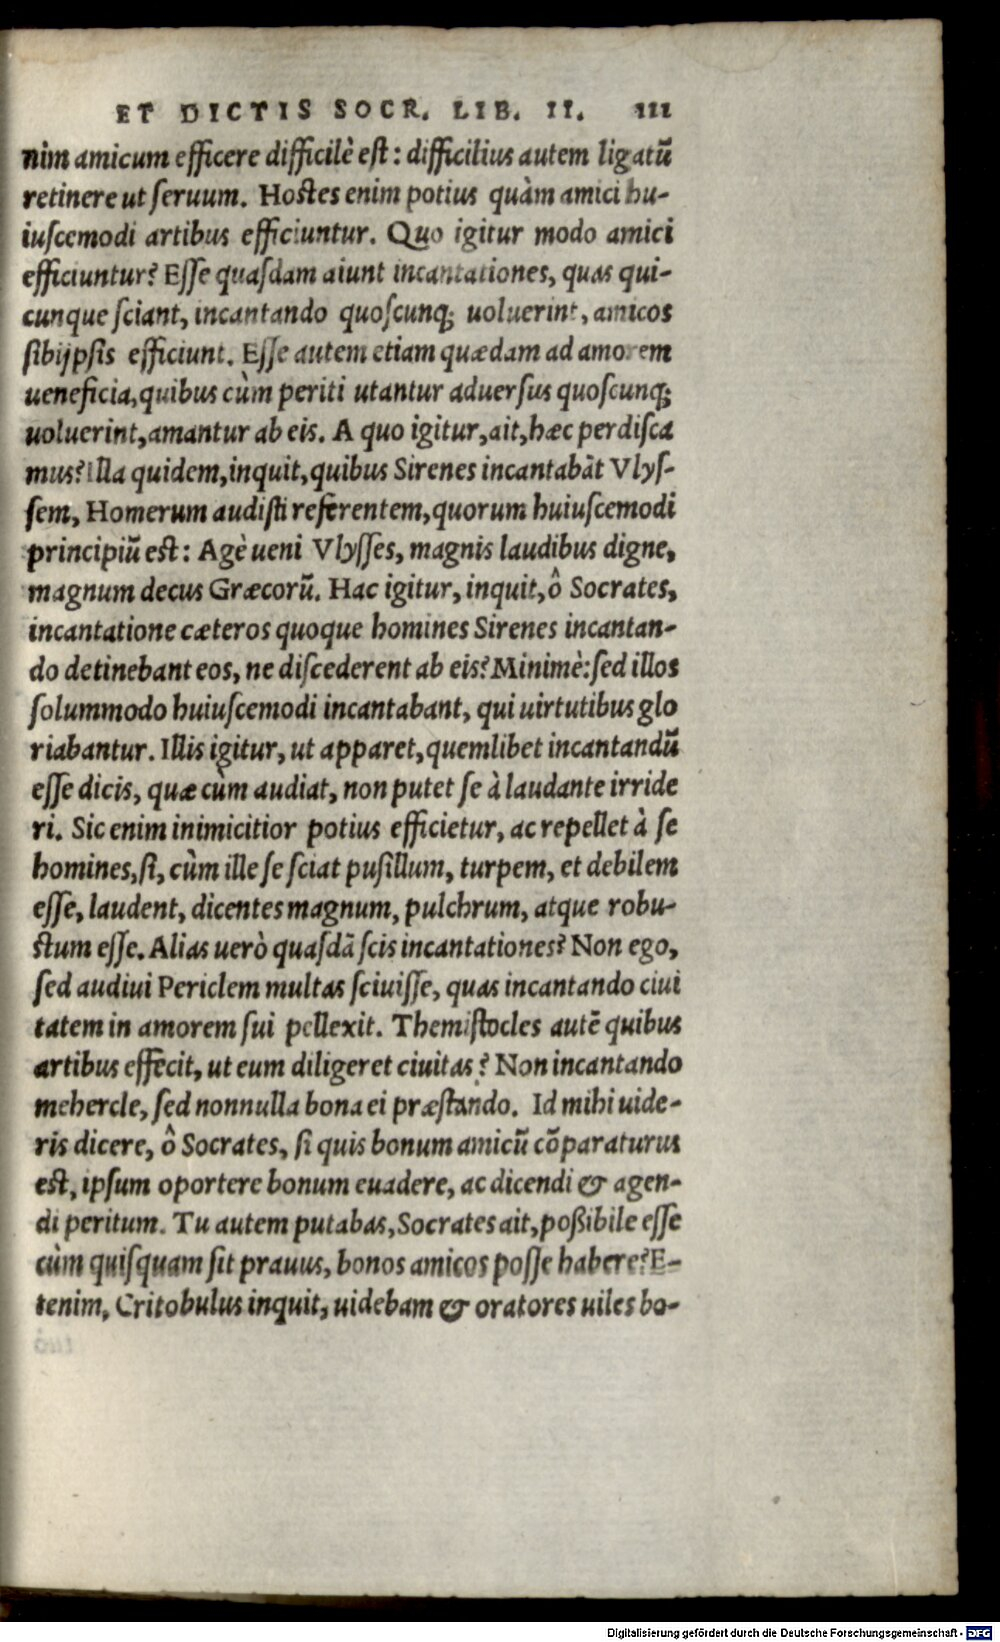 ET DICTIS SOCR. LIB. II. 111
nim amicum efficere difficilè est: difficilius autem ligatũ
retinere ut seruum. Hostes enim potius quàm amici hu-
iuscemodi artibus efficiuntur. Quo igitur modo amici
efficiuntur? Esse quasdam aiunt incantationes, quas qui-
cunque sciant, incantando quoscunq; uoluerint, amicos
sibijpsis efficiunt. Esse autem etiam quædam ad amorem
ueneficia, quibus cùm periti utantur aduersus quoscunq;
uoluerint, amantur ab eis. A quo igitur, ait, hæc perdisca
mus? Illa quidem, inquit, quibus Sirenes incantabãt Vlys-
sem, Homerum audisti referentem, quorum huiuscemodi
principiũ est: Agè ueni Vlysses, magnis laudibus digne,
magnum decus Græcorũ. Hac igitur, inquit, ô Socrates,
incantatione cæteros quoque homines Sirenes incantan-
do detinebant eos, ne discederent ab eis? Minimè: sed illos
solummodo huiuscemodi incantabant, qui uirtutibus glo
riabantur. Illis igitur, ut apparet, quemlibet incantandũ
esse dicis, quæ cùm audiat, non putet se à laudante irride
ri. Sic enim inimicitior potius efficietur, ac repellet à se
homines, si, cùm ille se sciat pusillum, turpem, et debilem
esse, laudent, dicentes magnum, pulchrum, atque robu-
stum esse. Alias uerò quasdã scis incantationes? Non ego,
sed audiui Periclem multas sciuisse, quas incantando ciui
tatem in amorem sui pellexit. Themistocles autẽ quibus
artibus effecit, ut eum diligeret ciuitas? Non incantando
mehercle, sed nonnulla bona ei præstando. Id mihi uide-
ris dicere, ô Socrates, si quis bonum amicũ cõparaturus
est, ipsum oportere bonum euadere, ac dicendi & agen-
di peritum. Tu autem putabas, Socrates ait, poßibile esse
cùm quisquam sit prauus, bonos amicos posse habere? E-
tenim, Critobulus inquit, uidebam & oratores uiles bo-
Digitalisierung gefördert durch die Deutsche Forschungsgemeinschaft - DFG